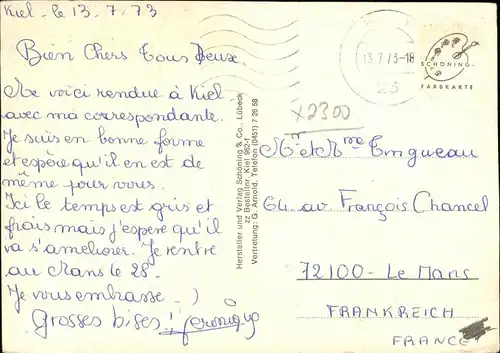 Kiel - le 13. 7. 73
Bien Chers Tous Deux.
Me voici rendue à Kiel
avec ma correspondante.
Je suis en bonne forme
et espère qu'il en est de
même pour vous.
Ici le temps est gris et
frais mais j'espère qu'il
va s'améliorer. Je rentre
au Mans le 28.
Je vous embrasse
Grosses bises,
Hersteller und Verlag Schöning & Co., Lübeck
zz Bestellnr. Kiel 962-f
Vertretung: G. Arnold, Telefon (0451) 7 26 58
13.7.73-18
23
SCHÖNING-
FARBKARTE
x2300
M et Mme
64 av François Chancel
72100 - Le Mans
FRANKREICH
FRANCE